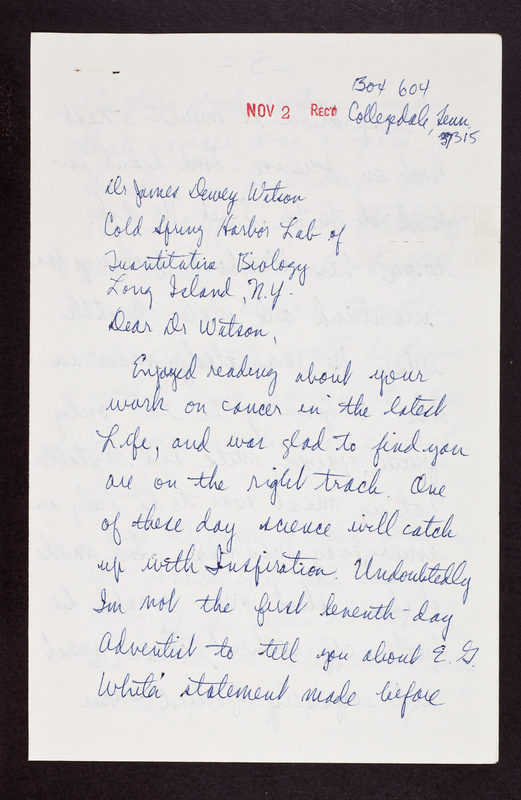 Box 604
NOV 2 REC'D Collegedale, Tenn.
37315
Dr James Dewey Watson
Cold Spring Harbor Lab of
Quantitative Biology
Long Island, N.Y.
Dear Dr Watson,
Enjoyed reading about your
work on cancer in the latest
Life, and was glad to find you
are on the right track. One
of these day science will catch
up with Inspiration. Undoubtedly
Im not the first Seventh-day
Adventist to tell you about E. G.
White's statement made before